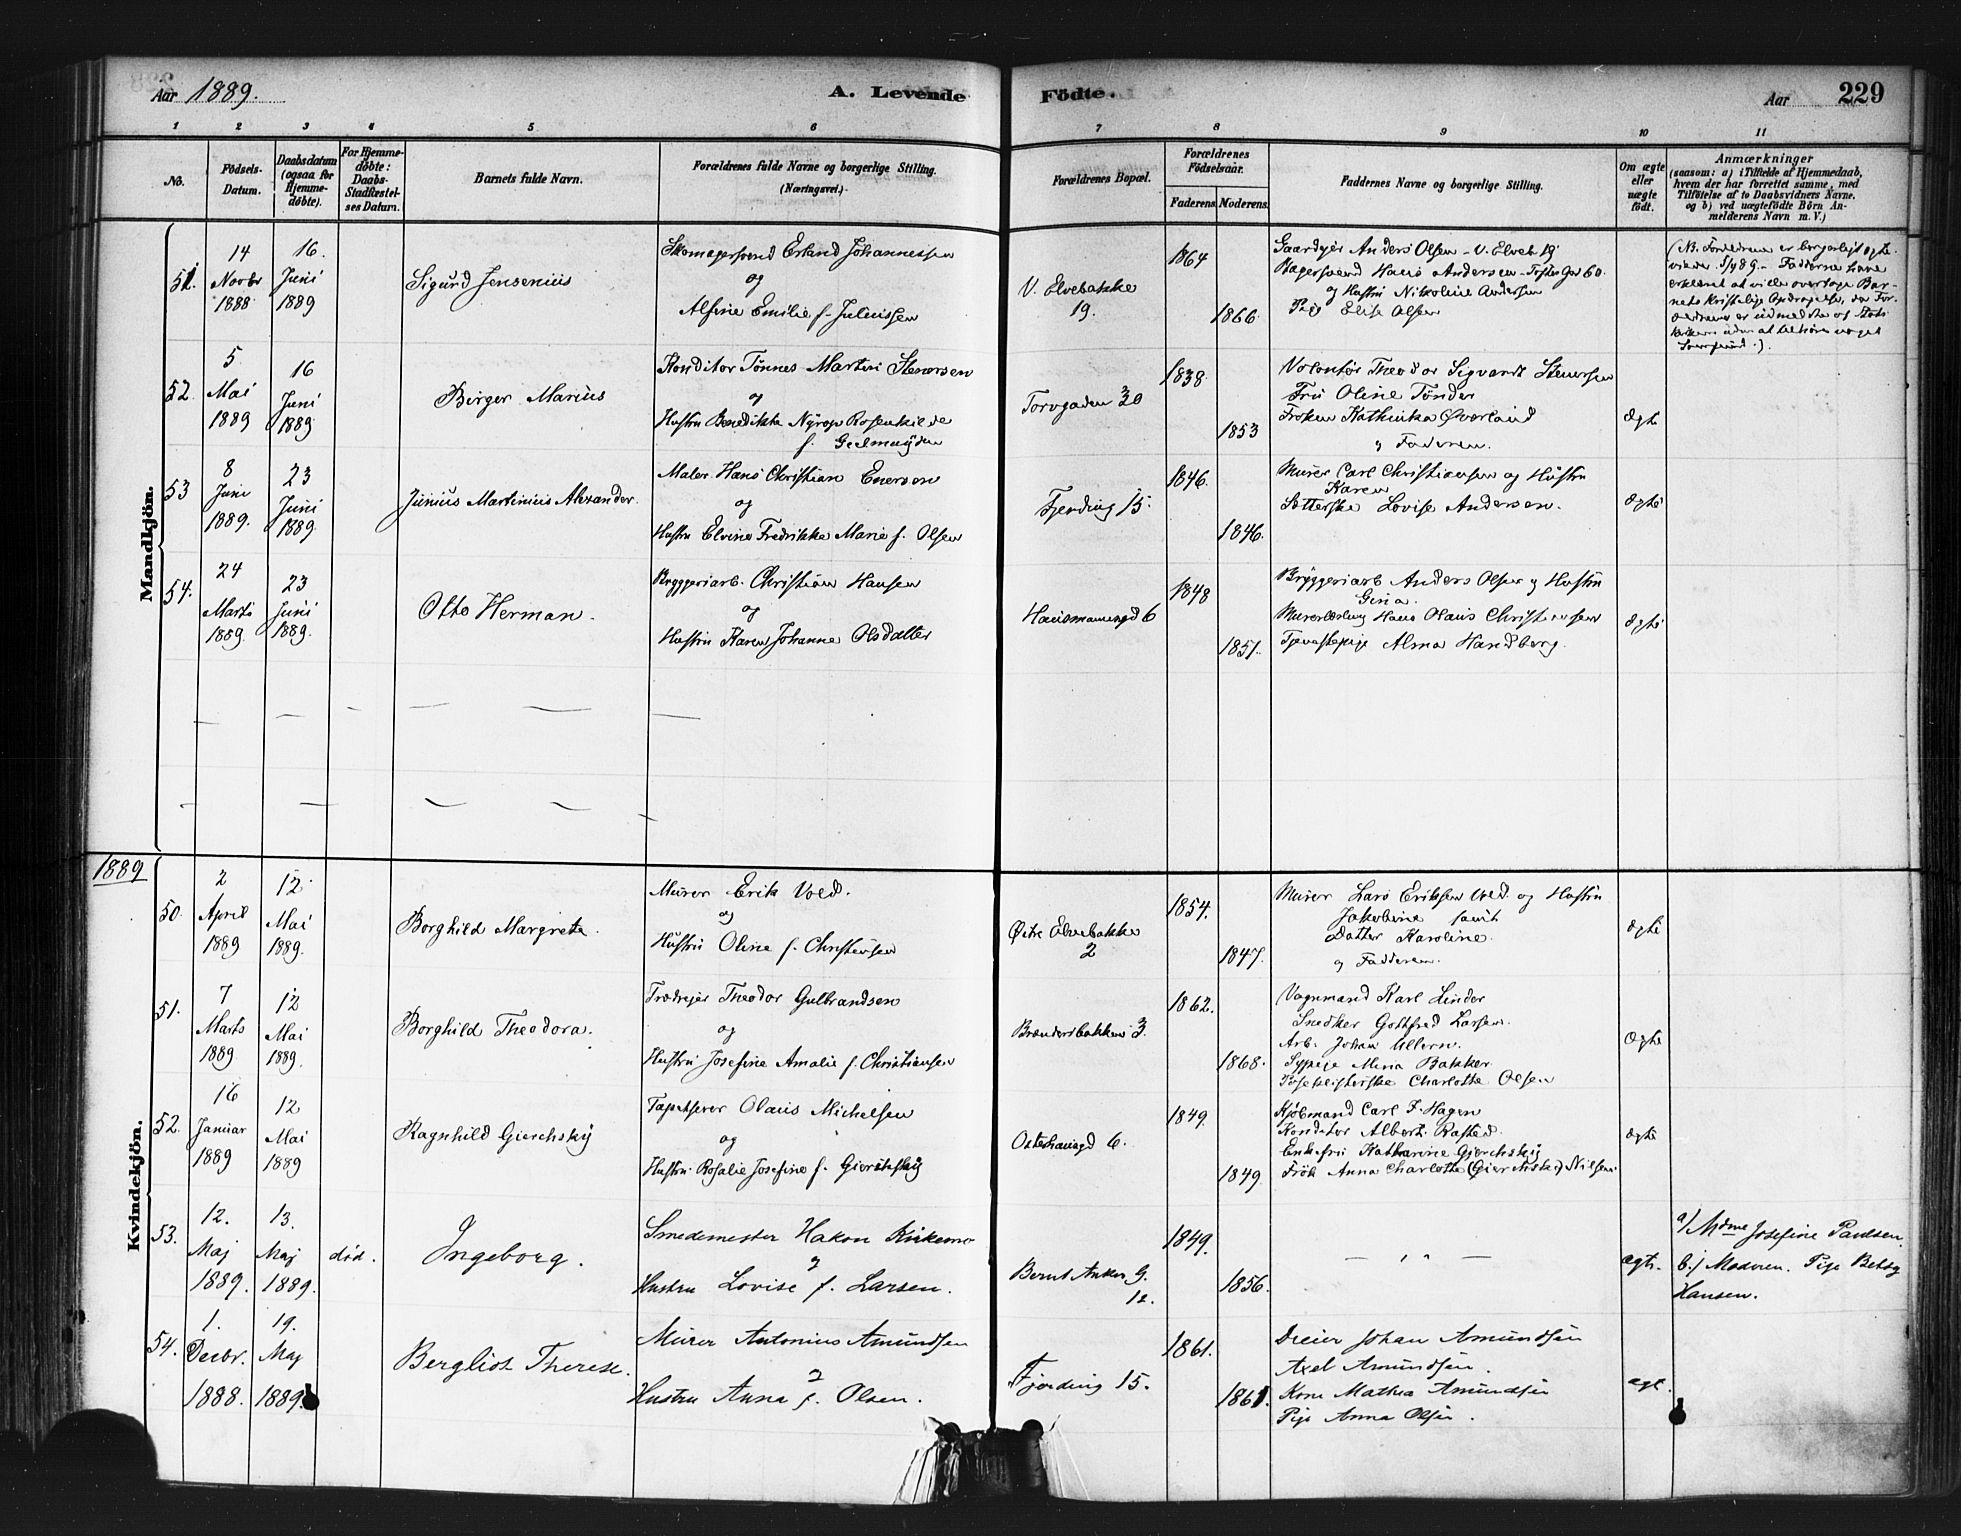 Aar 1889.
A. Levende Födte.
Aar
229
1 2 3 4 5 6 7 8 9 10 11
No.
Födsels-Datum.
Daabsdatum (ogsaa for Hjemme-döbte).
For Hjemme-döbte: Daabs-Stadfæstel-ses Datum.
Barnets fulde Navn.
Forældrenes fulde Navne og borgerlige Stilling. (Næringsvei.)
Forældrenes Bopæl.
Forældrenes Födselsaar.
Faderens. Moderens.
Faddernes Navne og borgerlige Stilling.
Om ægte eller uægte födt.
Anmærkninger
(saasom: a) i Tilfælde af Hjemmedaab,
hvem der har forrettet samme, med
Tilföielse af to Daabsvidners Navne.
og b) ved uægtefödte Börn An-
melderens Navn m. V.)
Mandkjön.
51.
14 Novbr 1888
16. Juni 1889
Sigurd Jensenius
Skomagersvend Erland Johannessen
og
Alfine Emilie f. Juliussen
V. Elvebakke
19.
1864
1866
Gaardejer Anders Olsen - V. Elveb 19
Bagersvend Hans Andersen
og Hustru Nikoline Andersen
Pige Elise Olsen
(NB. Forældrene er borgerligt ægte-
viede 5/4 89. - Fadderne have
erklæret at ville overtage Bar-
nets kristelige Opdragelse, da For-
ældrene er udmeldte af Stats-
kirken uden at tilhøre noget
Samfund.).
52.
5 Mai 1889
16 Juni 1889
Birger Marius
Konditor Tönnes Martin Stenersen
og
Hustru Benedikte Nyrop Rosenkilde
f. Geelmuyden
Torvgaden 30
1838.
1853
Volontør Theodor Sigvardt Stenersen
Fru Oline Tönder
Frøken Kathinka Overland
og Faderen.
ægte
53
8 Juni 1889.
23 Juni 1889.
Junius Martinius Alexander.
Maler Hans Christian Enersen
og
Hustru Elvine Fredrikke Marie f. Olsen
Fjerding 15.
1846.
1846.
Murer Carl Christiansen og Hustru
Karen
Lovise Andersen.
ægte
54.
24 Marts 1889.
23 Juni 1889.
Otto Herman.
Bryggeriarb. Christian Hansen
og
Hustru Karen Johanne Olsdatter
Hausmannsgd 6
1848
1851.
Bryggeriarb Anders Olsen og Hustru
Gina.
Murerlærling Hans Olaus Christiansen
Tjenestepige Alma Handberg.
ægte
1889
Kvindekjön.
50.
2 April 1889
12. Mai 1889.
Borghild Margrete.
Murer Erik Vold.
og
Hustru Oline f. Christensen
Østre Elvebakke
2
1854.
1847.
Murer Lars Eriksen Vold og Hustru
Jakobine samt
Datter Karoline.
og Fadderen.
ægte
51.
7 Marts 1889.
12 Mai 1889.
Borghild Theodora.
Trædrejer Theodor Gulbrandsen
og
Hustru Josefine Amalie f. Christiansen
Brændersbakken 3.
1862.
1868.
Vognmand Karl Linder
Snedker Gottfred Larsen.
Arb. Johan Ullern.
Sypige Mina Bakker
Charlotte Olsen
Ægte
52.
16 Januar 1889
12 Mai 1889
Ragnhild Gierchsky
Tapetserer Olaus Michelsen
og
Hustru Rosalie Josefine f. Gierchsky
Osterhausgd 6.
1849.
1849.
Kjöbmand Carl F. Hagen
Konditor Albert Rasted.
Enkefru Katharine Gjerchsky
Frök Anna Charlotte (Gierchski) Nilsen.
ægte
53.
12. Maj 1889.
13. Maj 1889.
död.
Ingeborg.
Smedemester Hakon Kirkemo
og
Hustru Lovise f. Larsen.
Bernt Anker G.
12.
1849.
1856.
— , „ —
ægte.
a/ Mdme Josefine Paulsen.
b./ Moderen. Pige Betsy
Hansen.
54.
1. Decbr. 1888.
19. Maj 1889.
Bergliot Therese.
Murer Antonius Amundsen
og
Hustru Anna f. Olsen.
Fjerding 15.
1861.
1861.
Dreier Johan Amundsen
Axel Amundsen.
Kone Mathea Amundsen
Pige Anna Olsen.
ægt.